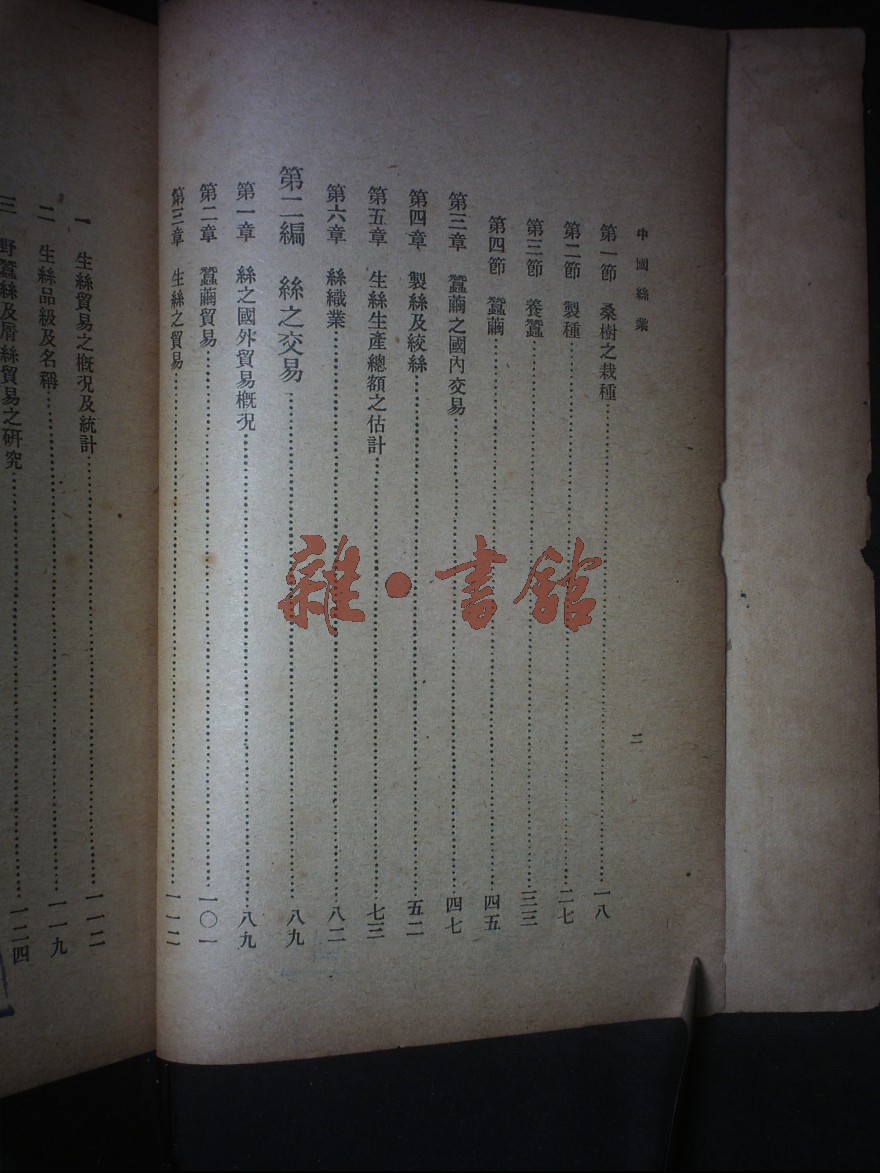 中國絲業
二
第一節　桑樹之栽種……一八
第二節　製種……二七
第三節　養蠶……三三
第四節　蠶繭……四五
第三章　蠶繭之國內交易……四七
第四章　製絲及絞絲……五二
第五章　生絲生產總額之估計……七三
第六章　絲織業……八二
第二編　絲之交易……八九
第一章　絲之國外貿易概況……八九
第二章　蠶繭貿易……一〇一
第三章　生絲之貿易……一一二
一　生絲貿易之概況及統計……一一二
二　生絲品級及名稱……一一九
三　野蠶絲及屑絲貿易之研究……一二四
雜·書館